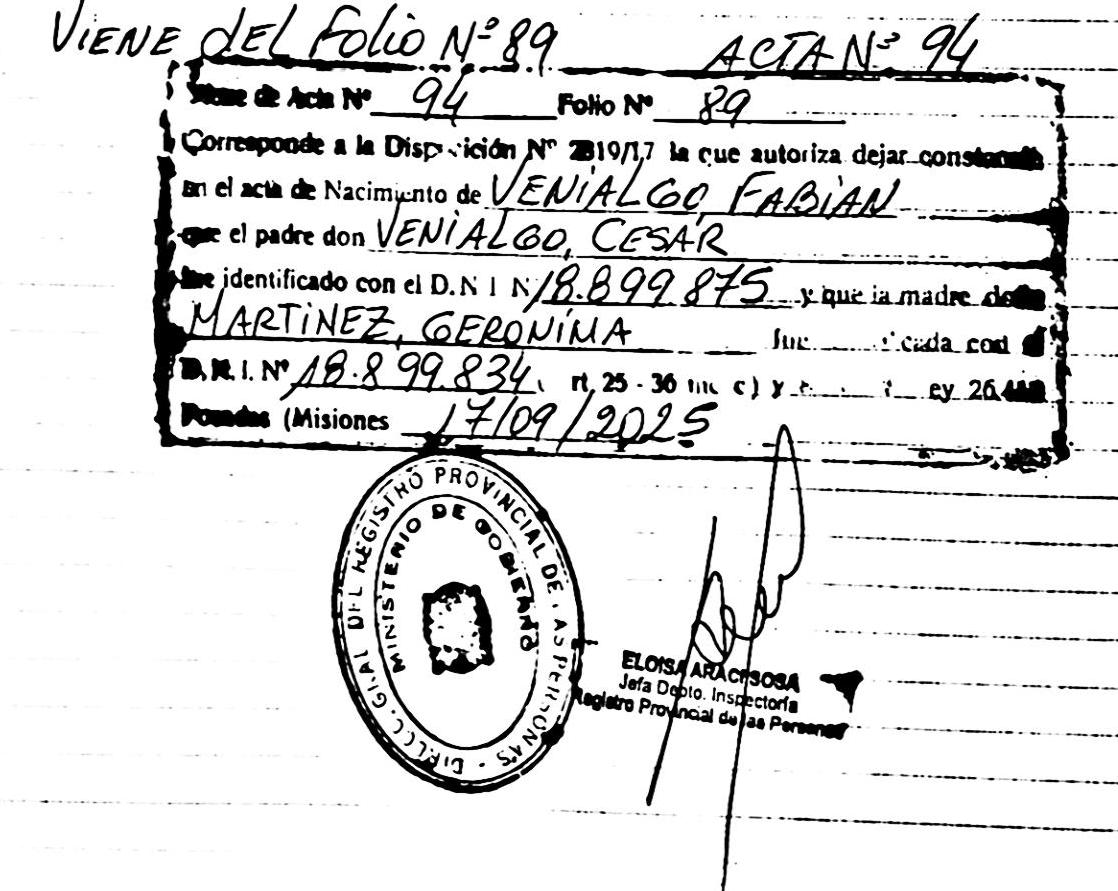 VIENE DEL FOLIO Nº 89 ACTA Nº 94
Viene de Acta Nº 94 Folio Nº 89
Corresponde a la Disposición Nº 2819/17 la que autoriza dejar constancia
en el acta de Nacimiento de VENIALGO, FABIAN
que el padre don VENIALGO, CESAR
fue identificado con el D.N I N 18.899.875 y que la madre doña
MARTINEZ, GERONIMA cada con el
D.N.I. Nº 18.899.834 rt. 25 - 36 inc c) y ey 26.413
Posadas (Misiones 17/09/2025
DIRECC. GRAL DEL REGISTRO PROVINCIAL DE LAS PERSONAS
MINISTERIO DE GOBIERNO
ELOISA SOSA
Jefa Depto. Inspectoría
Registro Provincial de las Personas